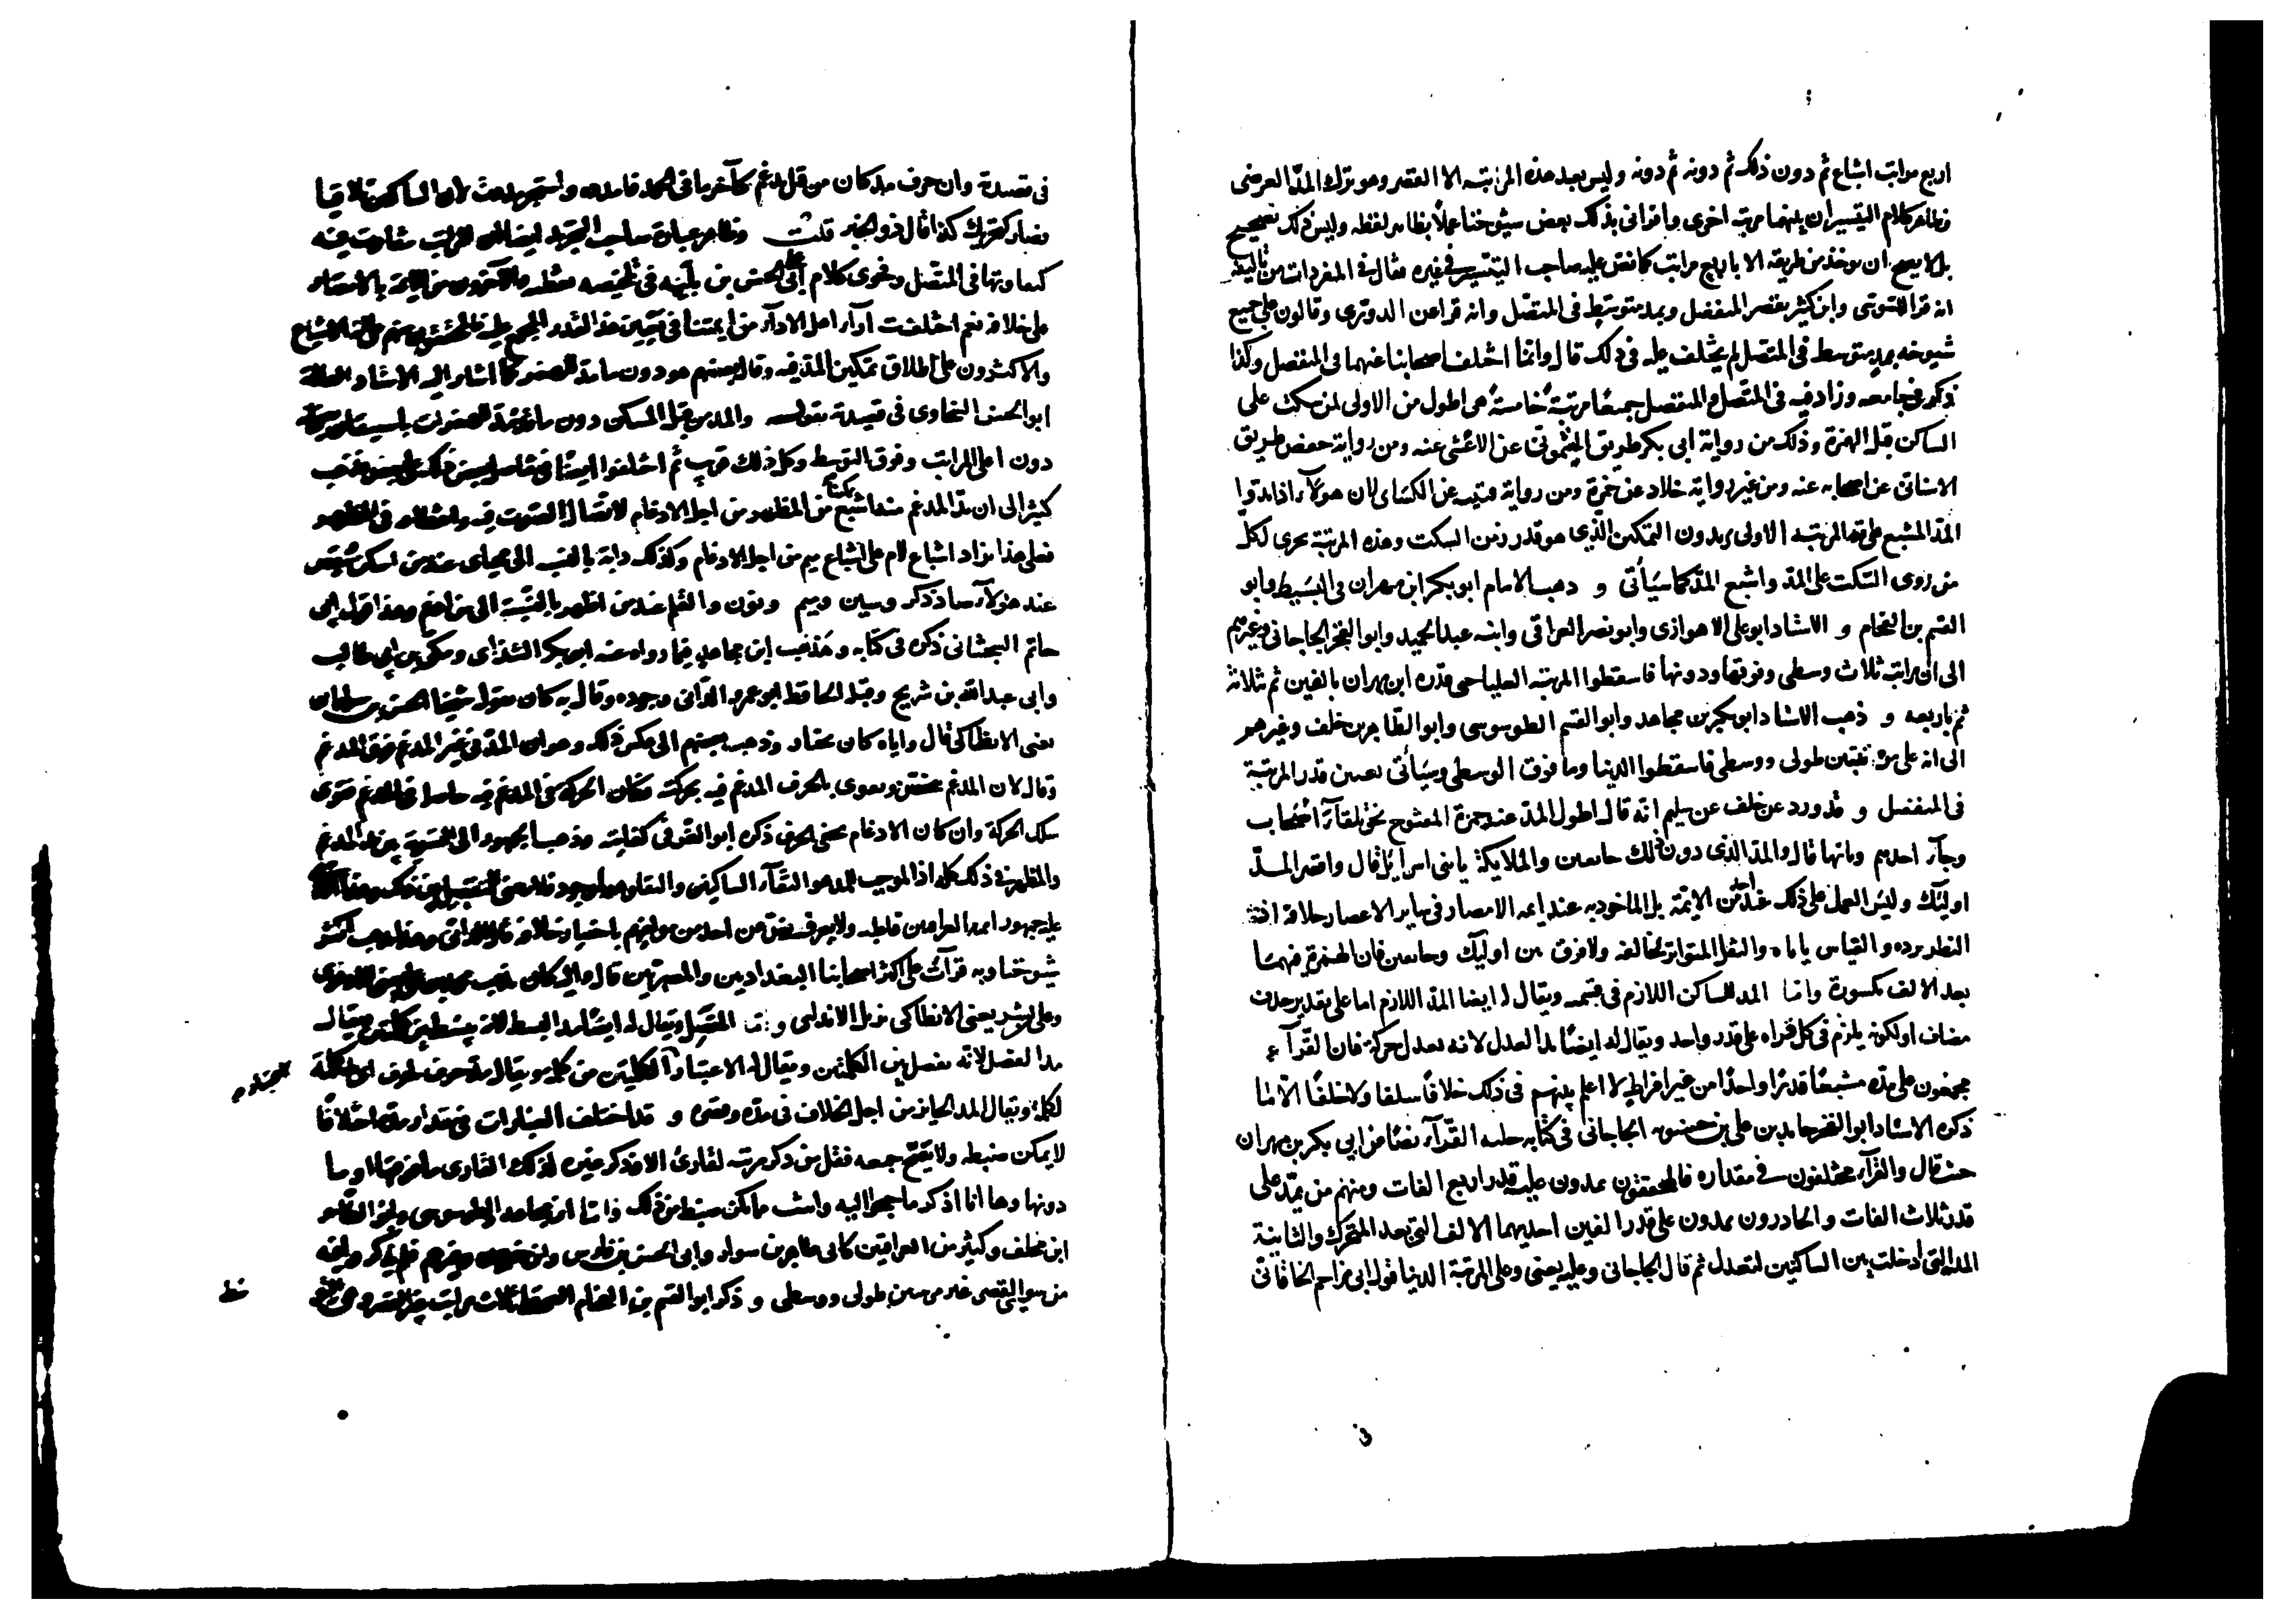 اربع مراتب اشباع ثم دون ذلك ثم دونه ثم دونه وليس بعد هذه المراتب الا القصر وهو ترك المدّ العرضى
وظاهر كلام التيسير ان بينهما مرتبة اخرى واقرانى بذلك بعض شيوخنا عملاً بظاهر لفظه وليس ذلك بصحيح
بل لا يصح ان يوخذ من طريقه الا باربع مراتب كما نص عليه صاحب التيسير فى غيره فقال فى المفردات من تاليفه
انه قرا للسوسى وابن كثير بقصر المنفصل وبمد متوسط فى المتصل وانه قرا عن الدورى وقالون على جميع
شيوخه بمد متوسط فى المتصل لم يختلف عليه فى ذلك قال وانما اختلف اصحابنا عنهما فى المنفصل وكذا
ذكر فى جامعه وزاد فيه فى المتصل والمنفصل جميعًا مرتبةً خامسةً هى اطول من الاولى لمن سكت على
الساكن قبل الهمزة وذلك من رواية ابى بكر طريق الشمونى عن الاعشى عنه ومن رواية حفص طريق
الاشنانى عن اصحابه عنه ومن غير رواية خلاد عن حمزة ومن رواية قتيبه عن الكسائى لان هولآء اذا مدّوا
المدّ المشبع على قدر المرتبه الاولى يريدون التمكين الذى هو قدر زمن السكت وهذه المرتبة تجرى لكل
من روى السكت على المد واشبع المد كما سيأتى و ذهب الامام ابو بكر ابن مهران فى البسيط وابو
القسم بن الفحام و الاستاد ابو على الاهوازى وابو نصر العراقى وابنه عبد الحميد وابو الفخر الجاجانى وغيرهم
الى ان مراتبه ثلاث وسطى وفوقها ودونها فاسقطوا المرتبه العليا حتى قدره ابن مهران بالفين ثم ثلاثة
ثم باربعه و ذهب الاستاد ابو بكر بن مجاهد وابو القسم الطرسوسى وابو الطاهر بن خلف وغيرهم
الى انه على مرتبتين طولى ووسطى فاسقطوا الدنيا وما فوق الوسطى وسيأتى تعيين قدر المرتبة
فى المنفصل و قد ورد عن خلف عن سليم انه قال اطول المدّ عند حمزة المفتوح نحو تلقآء اصحاب
وجآء احدهم وياايها قال والمد الذى دون ذلك خايفين والملايكة يابنى اسراييل قال واقصر المدّ
اوليك وليس العمل على ذلك عند احد من الايمّة بل الماخوذ به عند ايمه الامصار فى ساير الاعصار خلافه اذ
النظر يرده والقياس ياباه والنقل المتواتر يخالفه ولا فرق بين اوليك وخايفين فان الهمزة فيهما
بعد الالف مكسورة واما المد للساكن اللازم فى قسمه ويقال له ايضا المدّ اللازم اما على تقدير حذف
مضاف او لكونه يلزم فى كل قراة على قدر واحد ويقال له ايضًا مد العدل لانه يعدل حركة فان القرآء
مجمعون على مدّه مشبعًا قدرًا واحدًا من غير افراط لا اعلم بينهم فى ذلك خلافًا سلفًا ولا خلفًا الاّ ما
ذكره الاستاد ابو الفخر حامد بن على بن حسنويه الجاجانى فى كتابه حلية القرّآء نصًا عن ابى بكر بن مهران
حيث قال والقرآء مختلفون فى مقداره فالمحققون يمدون عليه قدر اربع الفات ومنهم من يمدّ على
قدر ثلاث الفات والحادرون يمدون على قدر الفين احديهما الالف التى بعد المتحرك والثانية
المدة التى ادخلت بين الساكنين لتعدل ثم قال الجاجانى وعليه يعنى وعلى المرتبة الدنيا قول ابى مزاحم الخاقانى
فى قصيدة وان حرف مد كان من قبل مدغم كآخر ما فى الحمد فامدده واستجر مددت لان الساكنين تلاقيا
فصار كتحريك كذا قال ذو الخبر قلت وظاهر عبارة صاحب التجريد ايضا ان المراتب تتفاوت فيه
كتفاوتها فى المتصل وفحوى كلام ابى على الحسن بن بليمه فى تلخيصه تعطيه والاخرون من الايمة بالامصار
على خلافه نعم اختلفت آرآء اهل الادآء من ايمتنا فى تعيين هذا القدر المجمع عليه فالمحققون منهم على انه الاشباع
والاكثرون على اطلاق تمكين المد فيه وقال بعضهم هو دون ما مد للهمز كما اشار اليه الاستاد العلامة
ابو الحسن السخاوى فى قصيدته بقوله والمد من قبل المسكن دون ما قد مد للهمزات باستيقان
دون اعلى المراتب وفوق التوسط وكل ذلك قريب ثم اختلفوا ايضًا فى تفاضل بعض ذلك على بعض فذهب
كثير الى ان مدّ المدغم منه اشبع تمكينا من المظهر من اجل الادغام لاتصال الصوت فيه وانقطاعه فى المظهر
فعلى هذا يزاد اشباع لام على اشباع ميم من اجل الادغام وكذلك دابة بالنسبة الى محياى عند من اسكن وينقص
عند هولآء صاد ذكر وسين وميم ونون والقلم عند من اظهر بالنسبة الى من ادغم وهذا قول ابى
حاتم السجستانى ذكره فى كتابه ومذهب ابن مجاهد فيما رواه عنه ابو بكر الشذاى ومكى بن ابى طالب
وابى عبد الله بن شريح وقبله الحافظ ابو عمرو الدّانى وجوده وقال به كان يقول شيخنا الحسن بن سليمان
يعنى الانطاكى قال واياه كان يختار وذهب بعضهم الى عكس ذلك وهو ان المدّ فى غير المدغم فوق المدغم
وقال لان المدغم يتحصن ويقوى بالحرف المدغم فيه بحركته فكان الحركة فى المدغم فيه حاصلة فى المدغم فقوى
بتلك الحركة وان كان الادغام يخفى الحرف ذكره ابو العز فى كفايته وذهب الجمهور الى التسوية بين مد المدغم
والمظهر فى ذلك كله اذ الموجب للمد هو التقآء الساكنين والتقاوهما موجود فلا معنى للتفصيل بين ذلك وهذا الذى
عليه جمهور ايمة العراقيين قاطبه ولا يعرف نص عن احد من مولفيهم باختيار خلافه قال الدانى وهذا مذهب اكثر
شيوخنا وبه قرأت على اكثر اصحابنا البغداديين والمصريين قال واليه كان يذهب محمد بن على يعنى الادفوى
وعلى بن بشر يعنى الانطاكى نزيل الاندلس و اما المنفصل ويقال له ايضًا مد البسط لانه يبسط بين كلمتين ويقال
مد الفصل لانه يفصل بين الكلمتين ويقال له الاعتبار لاعتبار الكلمتين من كلمة ويقال مد حرف لحرف اى مد كلمة
لكلمة ويقال المد الجايز من اجل الخلاف فى مده وقصره و قد اختلف العبارات فى مقدار مده اختلافًا
لا يمكن ضبطه ولا يصح جمعه فقل من ذكر مرتبه لقارئ الا وذكر غيره لذلك القارى ما فوقها او ما
دونها وها انا اذكر ما جنحوا اليه واثبت ما يمكن ضبطه من ذلك فاما ابن مجاهد والطرسوسى وابو الطاهر
ابن خلف وكثير من العراقيين كابى طاهر بن سوار وابى الحسن بن فارس وابن خيرون وغيرهم فلم يذكروا فيه
من سوى القصر غير مرتبتين طولى ووسطى و ذكر ابو القسم بن الفحام الصقلى ثلاث مراتب غير القصر وهى